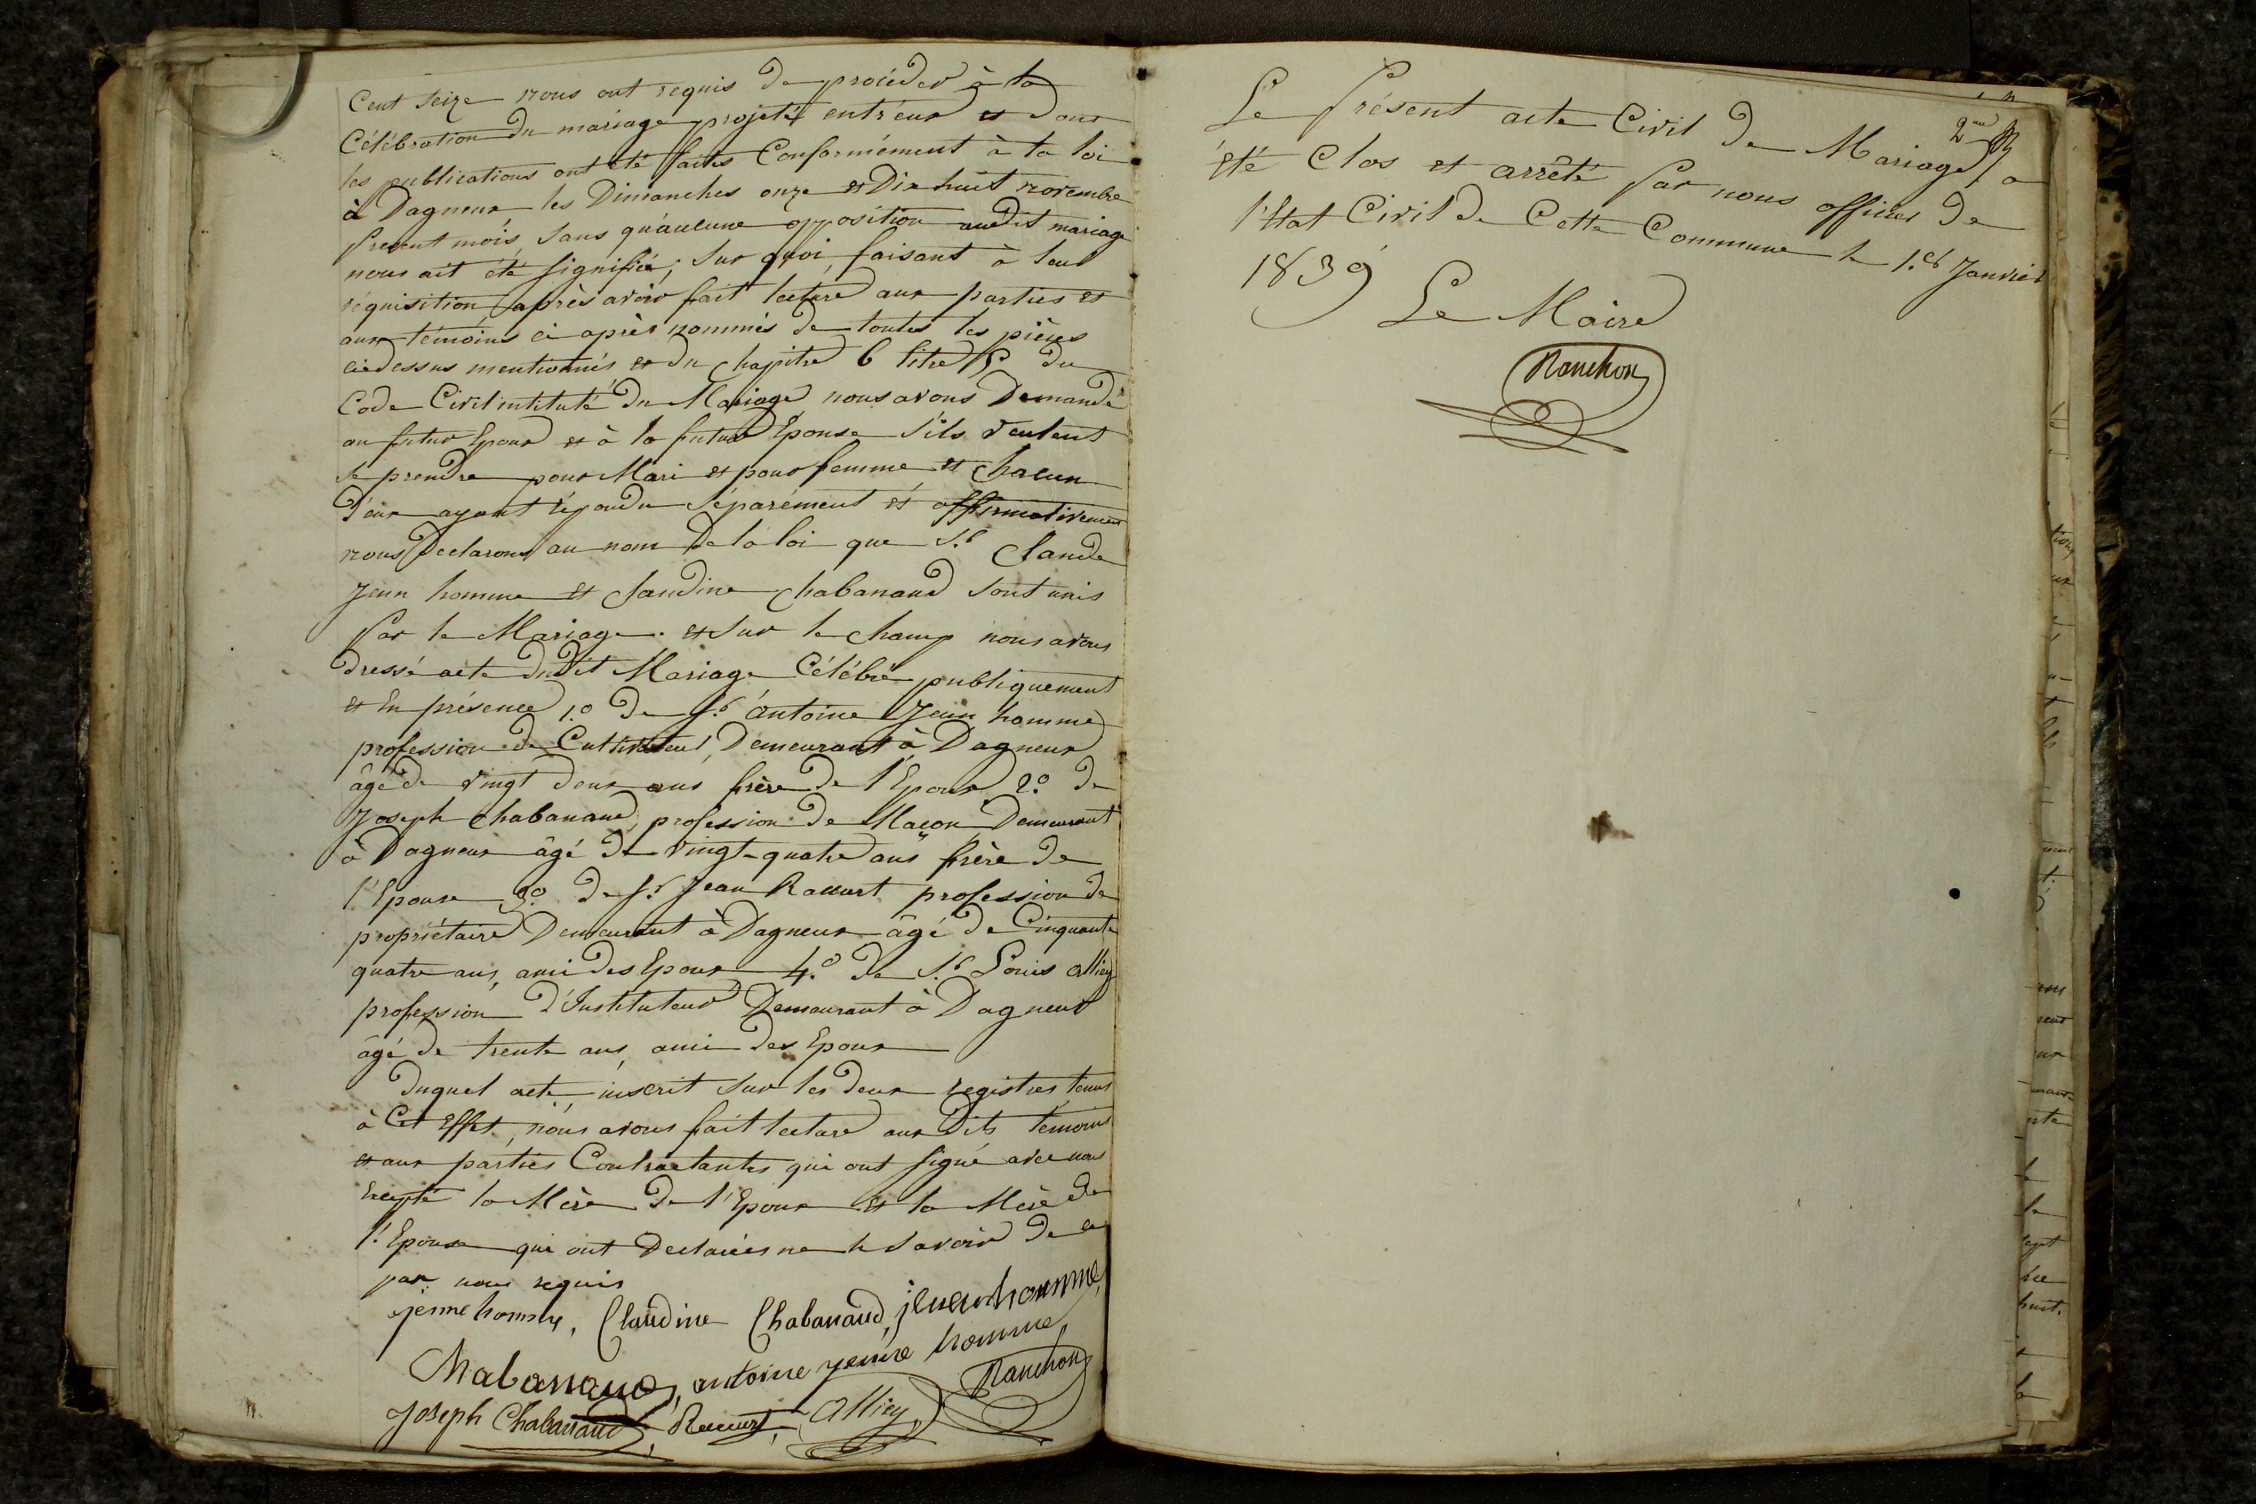 Cent seize nous ont requis de procéder à la
Célébration du mariage projeté entr'eux et dont
les publications ont été faites Conformément à la loi
à Dagneux les Dimanches onze et Dix huit novembre
present mois, sans qu'aucune opposition audit mariage
nous ait été signifiée; Sur quoi, faisant à leur
réquisition, après avoir fait lecture aux parties et
aux témoins ci après nommés de toutes les pièces
ci dessus mentionnés et du Chapitre 6 titre 5 du
Code Civil intitulé du Mariage nous avons Demandé
au futur Epoux et à la future Epouse s'ils veulent
se prendre pour Mari et pour femme et Chacun
d'eux ayant répondu séparément et affirmativement
nous Declarons au nom de la loi que Sr. Claude
Jeun homme et Claudine Chabanaud sont unis
par le Mariage. et sur le Champ nous avons
dressé acte dudit Mariage Célébré publiquement
et en présence 1.o De Sr. antoine Jeun homme
profession de Cultivateur, Demeurant à Dagneux
âgé de vingt deux ans frère de l'Epoux 2.o de
Joseph Chabanaud, profession de Maçon Demeurant
à Dagneux âgé de vingt-quatre ans frère de
l'Epouse 3.o de Sr. Jean Raccurt profession de
propriétaire Demeurant à Dagneux âgé de Cinquante
quatre ans, ami des Epoux 4.o de Sr. Louis Alliey
profession d'Instituteur Demeurant à Dagneux
âgé de trente ans, ami des Epoux
Duquel acte, inscrit sur les deux registres tenus
à Cet Effet, nous avons fait lecture aux Dits témoins
et aux parties Contractantes qui ont signé avec nous
Excepté la Mère de l'Epoux et la Mère de
l'Epouse qui ont Declarées ne le savoir de ce
par nous requis
jeune homme, Claudine Chabanaud, jeuen homme,
Chabanaud, antoine jeune homme, Nanchon
Joseph Chabanaud, Raccurt, Alliey
2
Le Présent acte Civil de Mariage, a
été Clos et arrêté par nous officier de
l'Etat Civil de Cette Commune le 1.er Janvier
1839
Le Maire
Nanchon